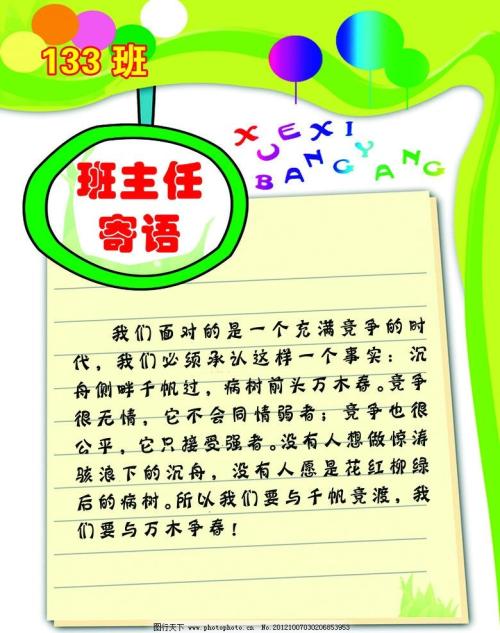 133 班
XUEXI
BANGYANG
班主任
寄语
我们面对的是一个充满竞争的时
代，我们必须承认这样一个事实：沉
舟侧畔千帆过，病树前头万木春。竞争
很无情，它不会同情弱者；竞争也很
公平，它只接受强者。没有人想做惊涛
骇浪下的沉舟，没有人愿是花红柳绿
后的病树。所以我们要与千帆竞渡，我
们要与万木争春！
图行天下 www.photophoto.cn No.20121007030206853953